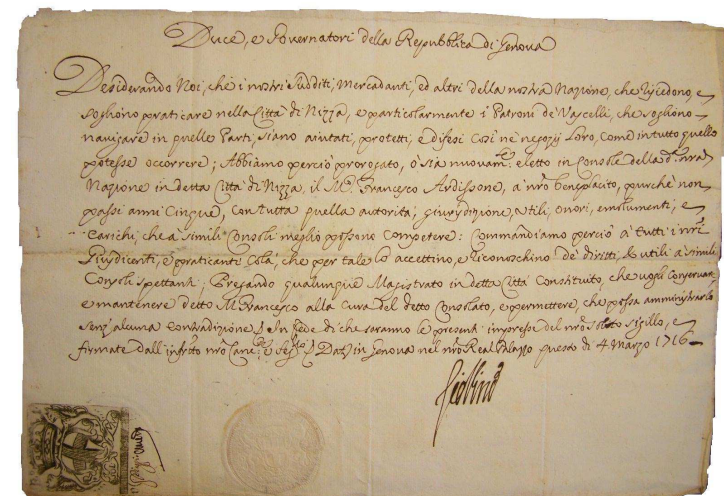 Duce, e Governatori della Repubblica di Genova
Desiderando Noi, che i nostri Sudditi, Mercadanti, ed altri della nostra Nazione, che risedono, e
sogliono praticare nella Città di Nizza, e particolarmente i Patroni de Vascelli, che sogliono
navigare in quelle Parti, siano aiutati, protetti, e difesi così ne negozij loro, come in tutto quello
potesse occorrere; Abbiamo perciò prorogato, ò sia nuovam.te eletto in Console della d.a nra
Nazione in detta Città di Nizza, il M.co Francesco Ardissone, à nrõ beneplacito, purche non
passi anni Cinque, con tutta quella autorità, giurisdizione, utili, onori, emolumenti, e
Carichi, che à simili Consoli meglio possono competere: Commandiamo perciò à tutti i nrĩ
Giusdicenti, e praticanti Colà, che per tale lo accettino, e riconoschino de diritti, & utili à simili
Consoli spettanti; Pregando qualunque Magistrato in detta Città Constituito, che vogli Conservare,
e mantenere detto M. Francesco alla Cura del detto Consolato, e permettere, che possa amministrarlo
senz'alcuna Contradizione. In fede di che saranno le presenti impresse del nrõ solito sigillo, e
firmate dall'infrõ nrõ Canc.re e Seg.rio Dat. in Genova nel nrõ Real Palazzo questo dì 4 Marzo 1716